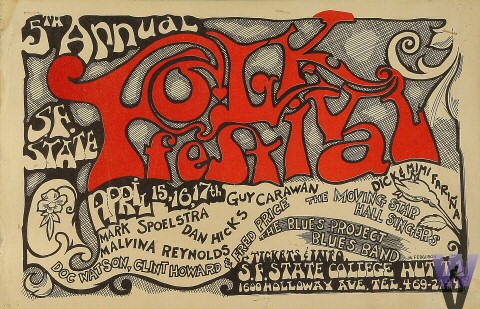 5TH Annual
S.F. STATE
FOLK
Festival
APRIL 15, 16, 17th
MARK SPOELSTRA
DAN HICKS
GUY CARAWAN
THE MOVING STAR
HALL SINGERS
DICK & MIMI FARIÑA
MALVINA REYNOLDS
DOC WATSON, CLINT HOWARD & FRED PRICE
THE BLUES PROJECT
BLUES BAND
TICKETS & INFO.
S.F. STATE COLLEGE
1600 HOLLOWAY AVE. TEL.